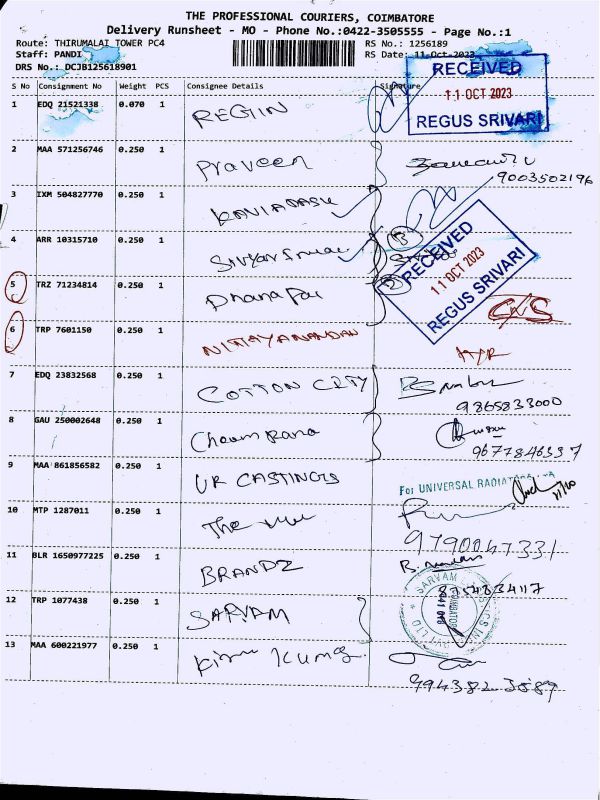 THE PROFESSIONAL COURIERS, COIMBATORE
Delivery Runsheet - MO - Phone No.:0422-3505555 - Page No.:1
Route: THIRUMALAI TOWER PC4 RS No.: 1256189
Staff: PANDI RS Date: 11-Oct-2023
DRS No.: DCJB125618901
RECEIVED
11 OCT 2023
REGUS SRIVARI
S No Consignment No Weight PCS Consignee Details Signature
1 EDQ 21521338 0.070 1 REGUN
2 MAA 571256746 0.250 1 Praveen
9003502196
3 IXM 504827770 0.250 1
4 ARR 10315710 0.250 1
RECEIVED
11 OCT 2023
REGUS SRIVARI
5 TRZ 71234814 0.250 1 Dhanapal
6 TRP 7601150 0.250 1 NITHYANANDAN
7 EDQ 23832568 0.250 1 COTTON CITY
9865833000
8 GAU 250002648 0.250 1
9677846337
9 MAA 861856582 0.250 1 UR CASTINGS For UNIVERSAL RADIATORS
10 MTP 1287011 0.250 1 The
9790047331
11 BLR 1650977225 0.250 1 BRANDZ
8754834117
12 TRP 1077438 0.250 1 SARVAM
SARVAM
COIMBATORE
641 018
13 MAA 600221977 0.250 1 Kumar